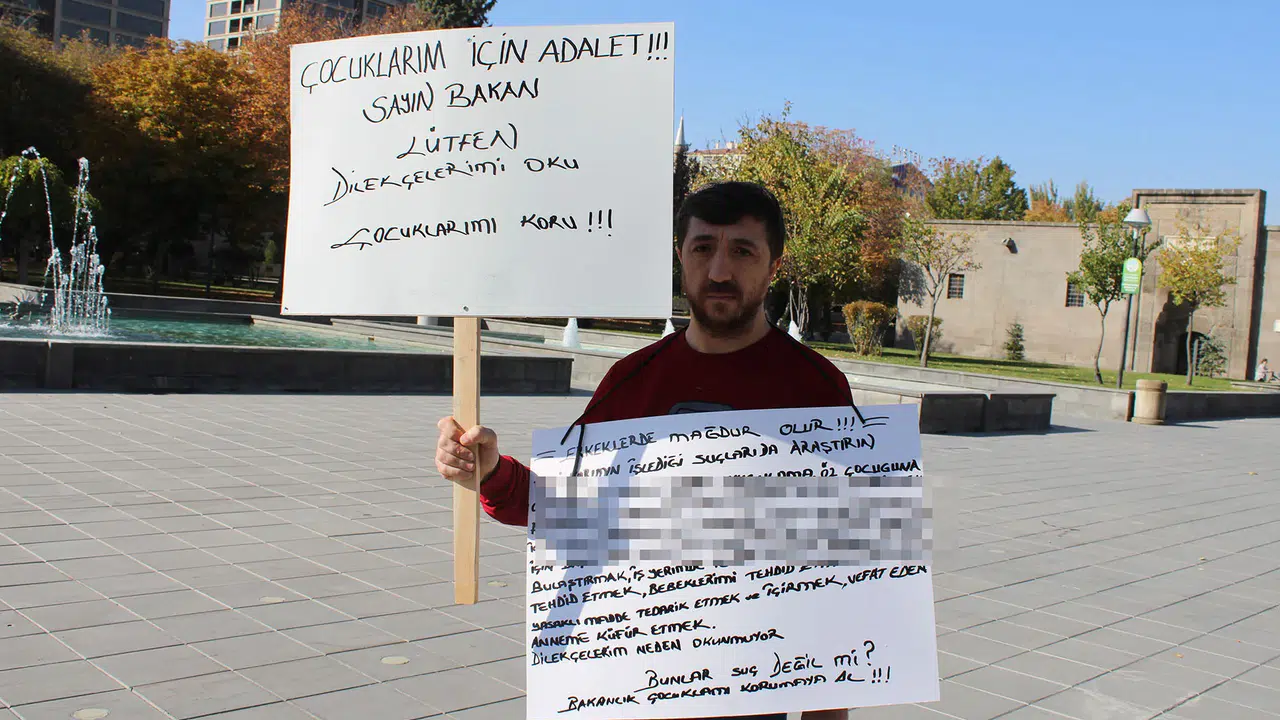 ÇOCUKLARIM İÇİN ADALET!!!
SAYIN BAKAN
LÜTFEN
DİLEKÇELERİMİ OKU
ÇOCUKLARIMI KORU !!!
= ERKEKLERDE MAĞDUR OLUR!!! =
İŞLEDİĞİ SUÇLARIDA ARAŞTIRIN
ÖZ ÇOCUĞUNA
İÇİN
BULAŞTIRMAK, İŞ YERİMDE
TEHDİD ETMEK, BEBEKLERİMİ TEHDİD
YASAKLI MADDE TEDARİK ETMEK VE İÇİRMEK, VEFAT EDEN
ANNEME KÜFÜR ETMEK.
DİLEKÇELERİM NEDEN OKUNMUYOR
BUNLAR SUÇ DEĞİL Mİ?
BAKANLIK ÇOCUKLAMI KORUMAYA AL !!!